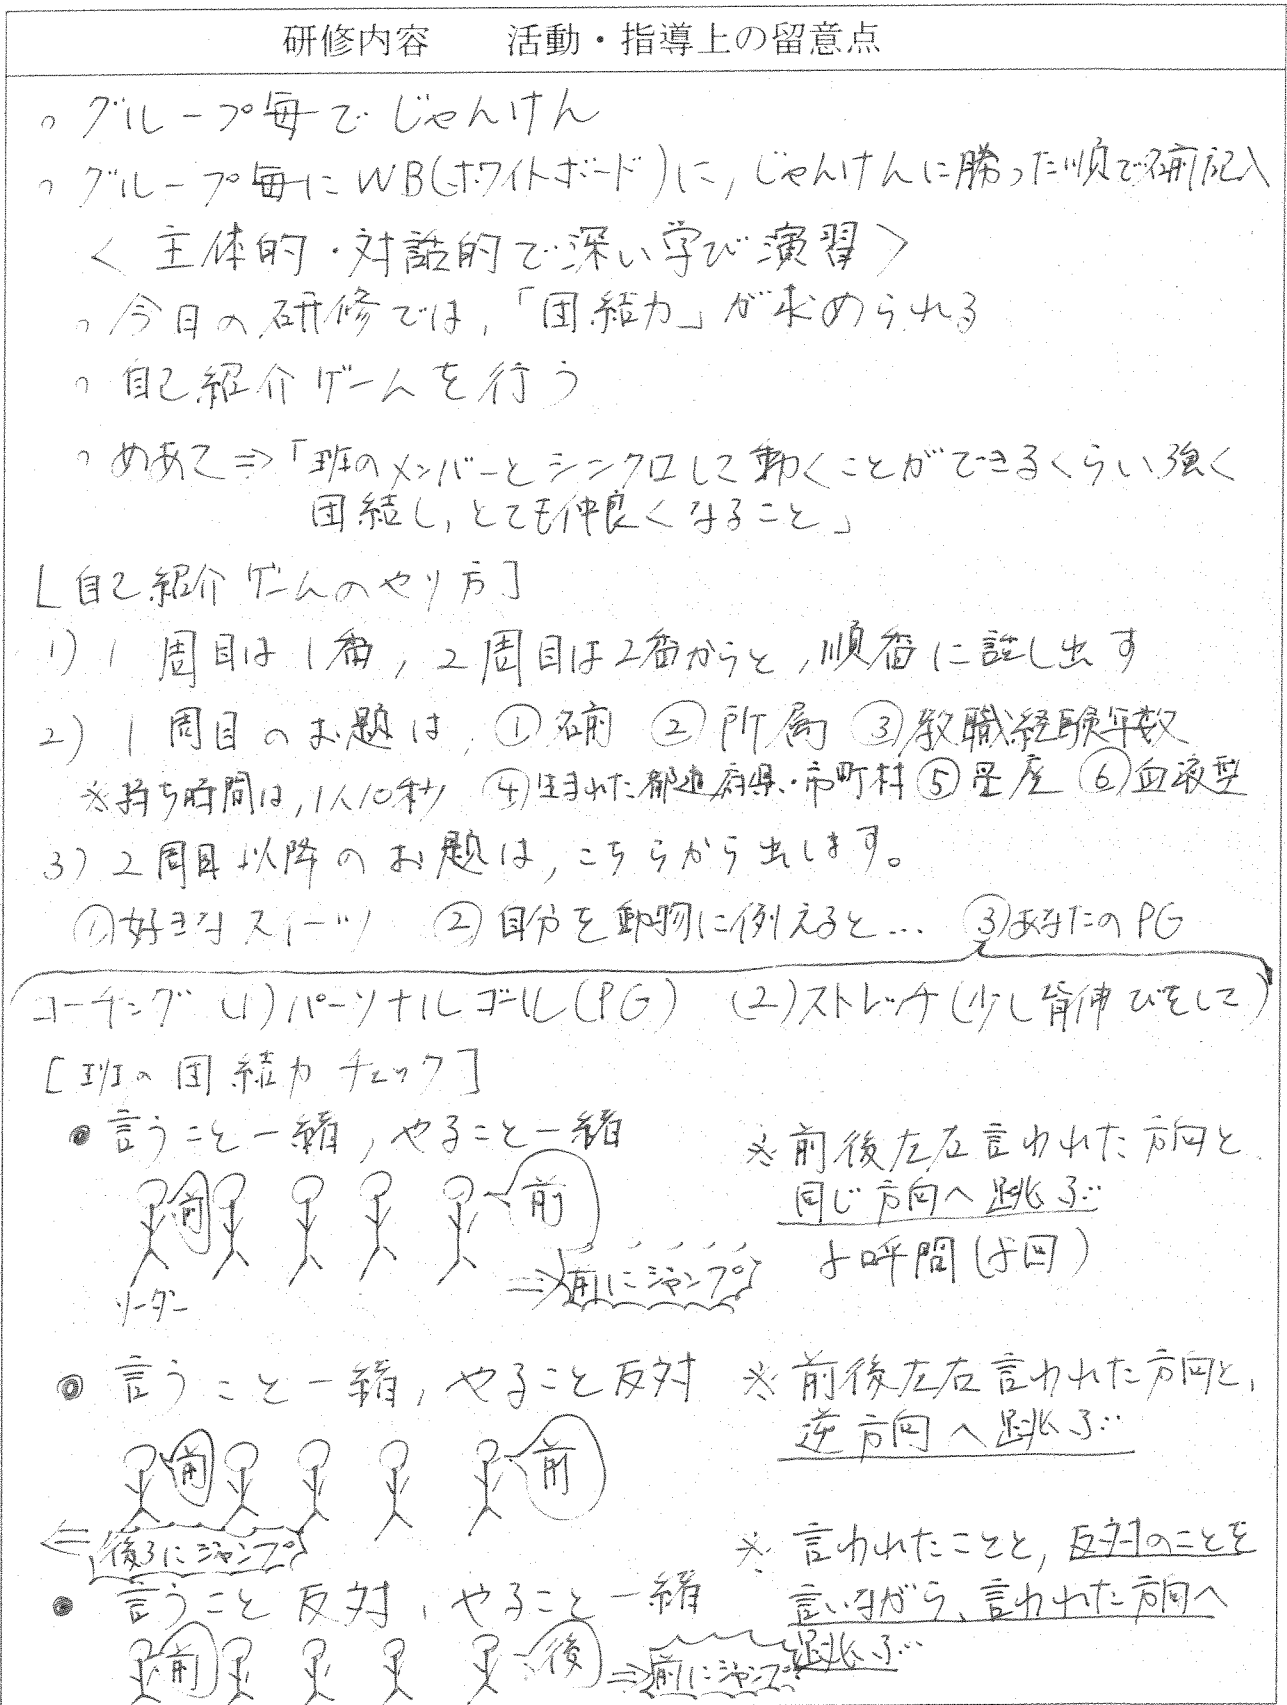 研修内容　　活動・指導上の留意点
○ グループ毎でじゃんけん
○ グループ毎にWB(ホワイトボード)に,じゃんけんに勝った順で名前記入
<主体的・対話的で深い学び演習>
○ 今日の研修では,「団結力」が求められる
○ 自己紹介ゲームを行う
○ めあて⇒「班のメンバーとシンクロして動くことができるくらい強く
団結し,とても仲良くなること」
[自己紹介ゲームのやり方]
1) 1周目は1番, 2周目は2番からと,順番に話し出す
2) 1周目のお題は, ①名前 ②所属 ③教職経験年数
※持ち時間は,1人10秒 ④生まれた都道府県・市町村 ⑤星座 ⑥血液型
3) 2周目以降のお題は,こちらから出します。
①好きなスイーツ ②自分を動物に例えると… ③あなたのPG
コーチング (1)パーソナルゴール(PG) (2)ストレッチ(少し背伸びをして)
[班の団結力チェック]
● 言うこと一緒,やること一緒
※前後左右言われた方向と
同じ方向へ跳ぶ
前 前
⇒前にジャンプ
よ呼間(よ回)
リーダー
◎ 言うこと一緒,やること反対 ※前後左右言われた方向と,
逆方向へ跳ぶ
前 前
⇐後ろにジャンプ
※ 言われたことと,反対のことを
● 言うこと反対,やること一緒 言いながら、言われた方向へ
跳ぶ
前 後 ⇒前にジャンプ